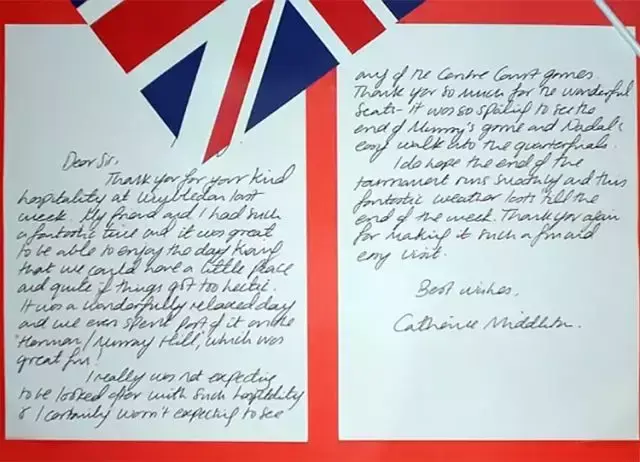 Dear Sir,
Thank you for your kind
hospitality at Wimbledon last
week. My friend and I had such
a fantastic time and it was great
to be able to enjoy the day knowing
that we could have a little peace
and quiet if things got too hectic.
It was a wonderfully relaxed day
and we even spent part of it on the
"Henman/Murray Hill", which was
great fun!
I really was not expecting
to be looked after with such hospitality
& I certainly wasn't expecting to see
any of the Centre Court games.
Thank you so much for the wonderful
seats - it was so spoiling to see the
end of Murray's game and Nadal's
easy walk into the quarterfinals.
I do hope the end of the
tournament runs smoothly and this
fantastic weather lasts 'till the
end of the week. Thank you again
for making it such a fun and
easy visit.
Best wishes,
Catherine Middleton.